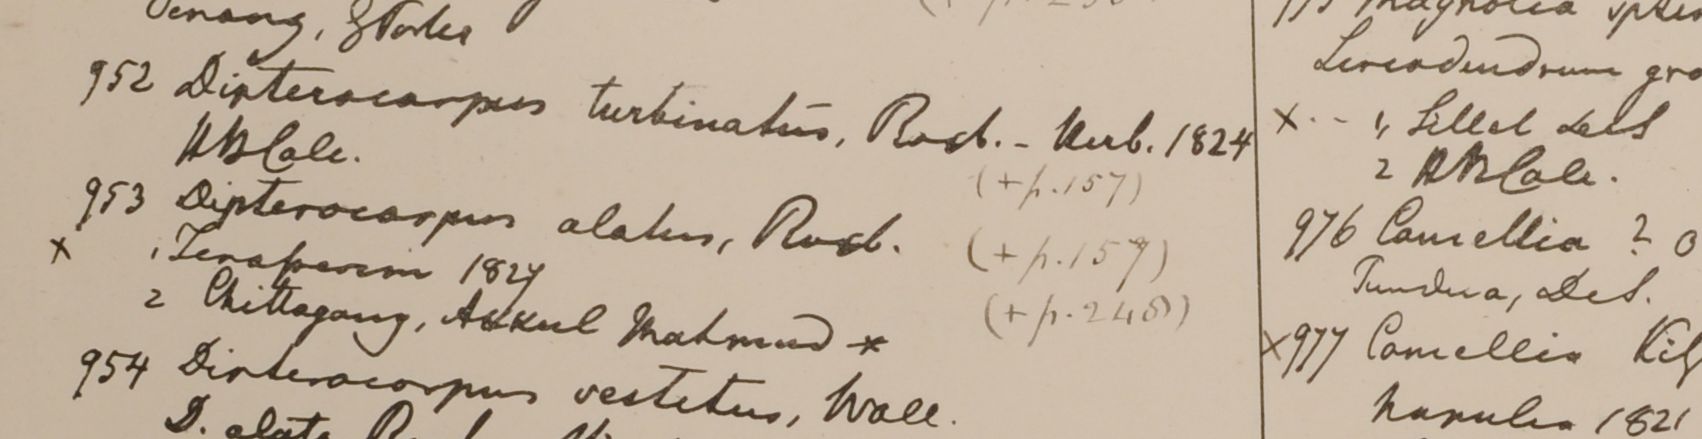 Penang, G Porter
952 Dipterocarpus turbinatus, Roxb. - Herb. 1824
HBCalc.
(+p.157)
953 Dipterocarpus alatus, Roxb.
(+p.157)
x 1, Tenasserim 1827
2 Chittagong, Akkul Mahmud *
(+p.248)
954 Dipterocarpus vestetus, Wall.
D. alata
Magnolia
Lireodendrum
x -- 1,
2 HBCalc.
976 Camellia ?
Tundua, DeS.
x 977 Camellia
1821